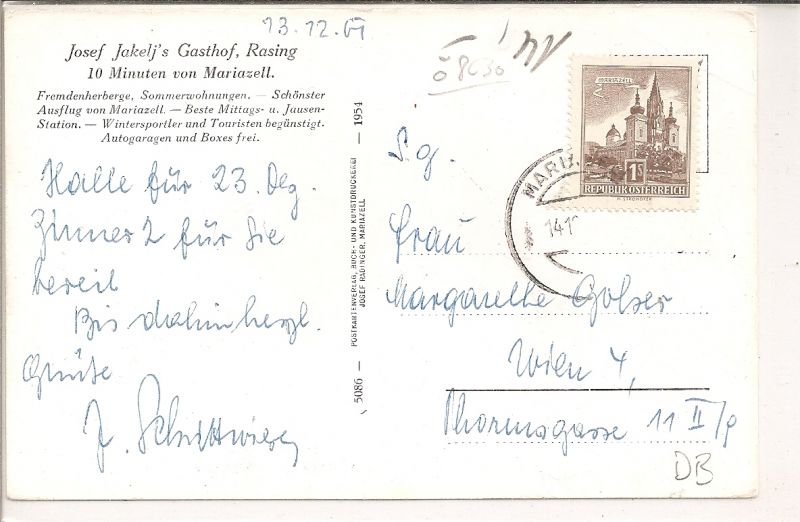 13.12.61
Josef Jakelj's Gasthof, Rasing
10 Minuten von Mariazell.
Fremdenherberge, Sommerwohnungen. — Schönster
Ausflug von Mariazell. — Beste Mittags- u. Jausen-
Station. — Wintersportler und Touristen begünstigt.
Autogaragen und Boxes frei.
Halte für 23. Dez.
Zimmer 2 für Sie
bereit
Bis dahin herzl.
Grüße
J. Schrittwieser
5086 — POSTKARTENVERLAG, BUCH- UND KUNSTDRUCKEREI — 1954
JOSEF RADINGER, MARIAZELL
ö 8630
MARIAZELL
1S
REPUBLIK ÖSTERREICH
MARIAZ
14.12
S.g.
Frau
Margarethe Golser
Wien 4,
Phorusgasse 11 II/9
DB